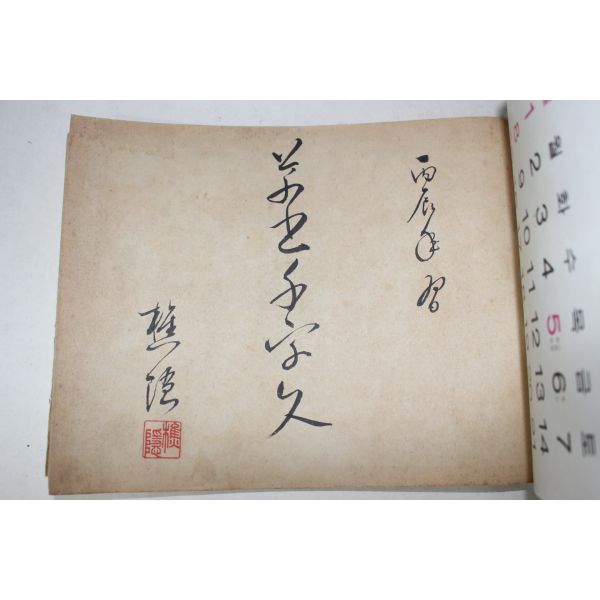 丙辰年習
草書千字文
樵隱
樵隱
월 화 수 목 금 토
1 2 3 4 5 6 7
8 9 10 11 12 13 14